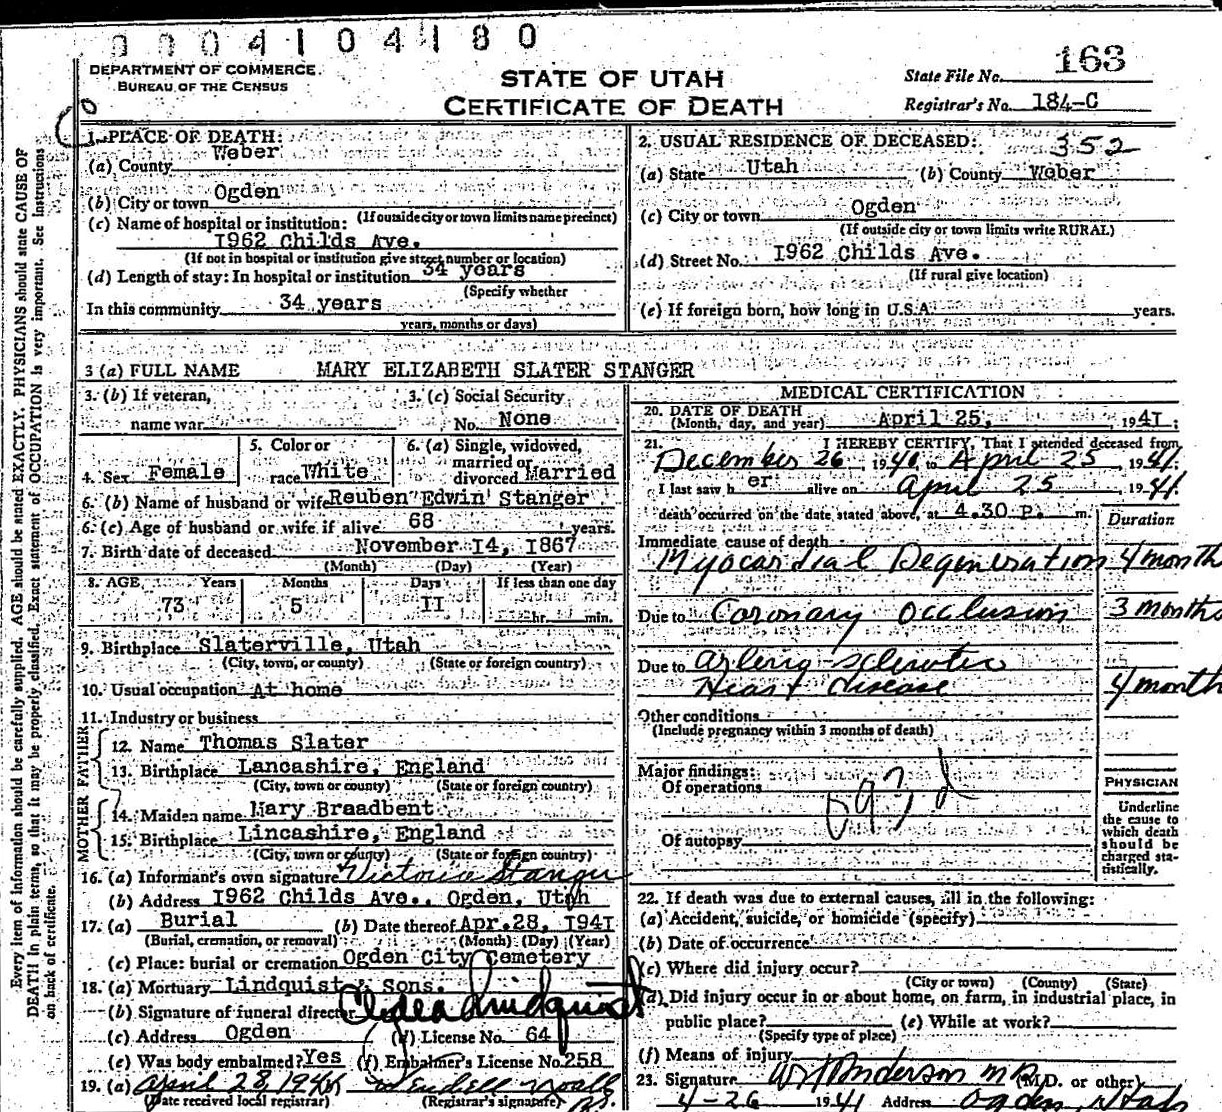 0004104180
DEPARTMENT OF COMMERCE
BUREAU OF THE CENSUS
STATE OF UTAH
CERTIFICATE OF DEATH
State File No. 163
Registrar's No. 184-C
Every item of information should be carefully supplied. AGE should be stated EXACTLY. PHYSICIANS should state CAUSE OF
DEATH in plain terms, so that it may be properly classified. Exact statement of OCCUPATION is very important. See instructions
on back of certificate.
1. PLACE OF DEATH:
(a) County Weber
(b) City or town Ogden
(If outside city or town limits name precinct)
(c) Name of hospital or institution:
1962 Childs Ave.
(If not in hospital or institution give street number or location)
(d) Length of stay: In hospital or institution 34 years
(Specify whether
In this community 34 years
years, months or days)
2. USUAL RESIDENCE OF DECEASED: 352
(a) State Utah (b) County Weber
(c) City or town Ogden
(If outside city or town limits write RURAL)
(d) Street No. 1962 Childs Ave.
(If rural give location)
(e) If foreign born, how long in U.S.A. years.
3 (a) FULL NAME MARY ELIZABETH SLATER STANGER
3. (b) If veteran,
name war
3. (c) Social Security
No. None
4. Sex Female
5. Color or
race White
6. (a) Single, widowed,
married or
divorced Married
6. (b) Name of husband or wife Reuben Edwin Stanger
6. (c) Age of husband or wife if alive 68 years.
7. Birth date of deceased November 14, 1867
(Month) (Day) (Year)
8. AGE Years Months Days If less than one day
73 5 11 hr. min.
9. Birthplace Slaterville, Utah
(City, town, or county) (State or foreign country)
10. Usual occupation At home
11. Industry or business
FATHER
12. Name Thomas Slater
13. Birthplace Lancashire, England
(City, town or county) (State or foreign country)
MOTHER
14. Maiden name Mary Broadbent
15. Birthplace Lincashire, England
(City, town or county) (State or foreign country)
16. (a) Informant's own signature Victoria Stanger
(b) Address 1962 Childs Ave., Ogden, Utah
17. (a) Burial (b) Date thereof Apr. 28, 1941
(Burial, cremation, or removal) (Month) (Day) (Year)
(c) Place: burial or cremation Ogden City Cemetery
18. (a) Mortuary Lindquist & Sons.
(b) Signature of funeral director Clyde Lindquist
(c) Address Ogden (d) License No. 64
(e) Was body embalmed? Yes (f) Embalmer's License No. 258
19. (a) April 28, 1941 Wendell Noall
(Date received local registrar) (Registrar's signature)
MEDICAL CERTIFICATION
20. DATE OF DEATH
(Month, day, and year) April 25, 1941
21. I HEREBY CERTIFY, That I attended deceased from
December 26, 1940, to April 25 1941
I last saw her alive on April 25, 1941
death occurred on the date stated above, at 4.30 P. m.
Duration
Immediate cause of death
Myocardial Degeneration 4 month
Due to Coronary Occlusion 3 months
Due to Arterio-sclerotic
Heart disease 4 month
Other conditions
(Include pregnancy within 3 months of death)
Major findings:
Of operations
Of autopsy
PHYSICIAN
Underline
the cause to
which death
should be
charged sta-
tistically.
22. If death was due to external causes, fill in the following:
(a) Accident, suicide, or homicide (specify)
(b) Date of occurrence
(c) Where did injury occur?
(City or town) (County) (State)
(d) Did injury occur in or about home, on farm, in industrial place, in
public place? (e) While at work?
(Specify type of place)
(f) Means of injury
23. Signature W H Anderson MD (M.D. or other)
4-26 1941 Address Ogden, Utah